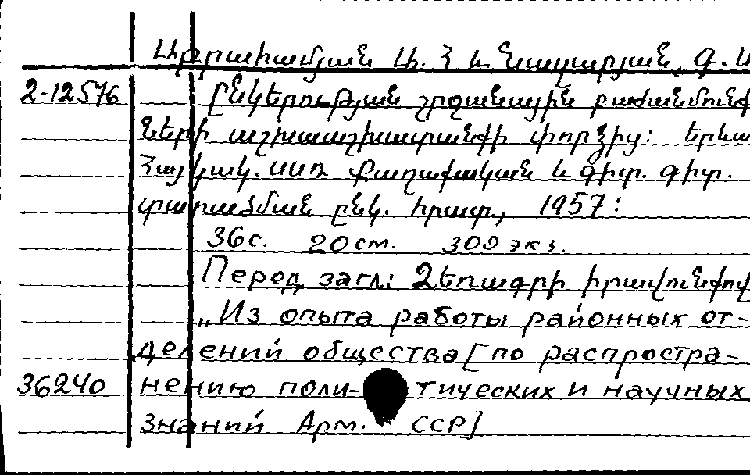 Աբրահամյան Ա. Հ և Նազարյան, Գ. Ա
2-12576 Ընկերության շրջանային բաժանմունք
ների աշխատանքի փորձից: Երևա
Հայկակ. ՍՍՌ Քաղաքական և գիտ. գիտ.
տարածման ընկ. հրատ., 1957:
36с. 20см. 300 экз.
Перед загл: Ձեռագրի իրավունքով
„Из опыта работы районных от-
делений общества [по распростра-
36240 нению поли- тических и научных
знаний Арм. ССР]